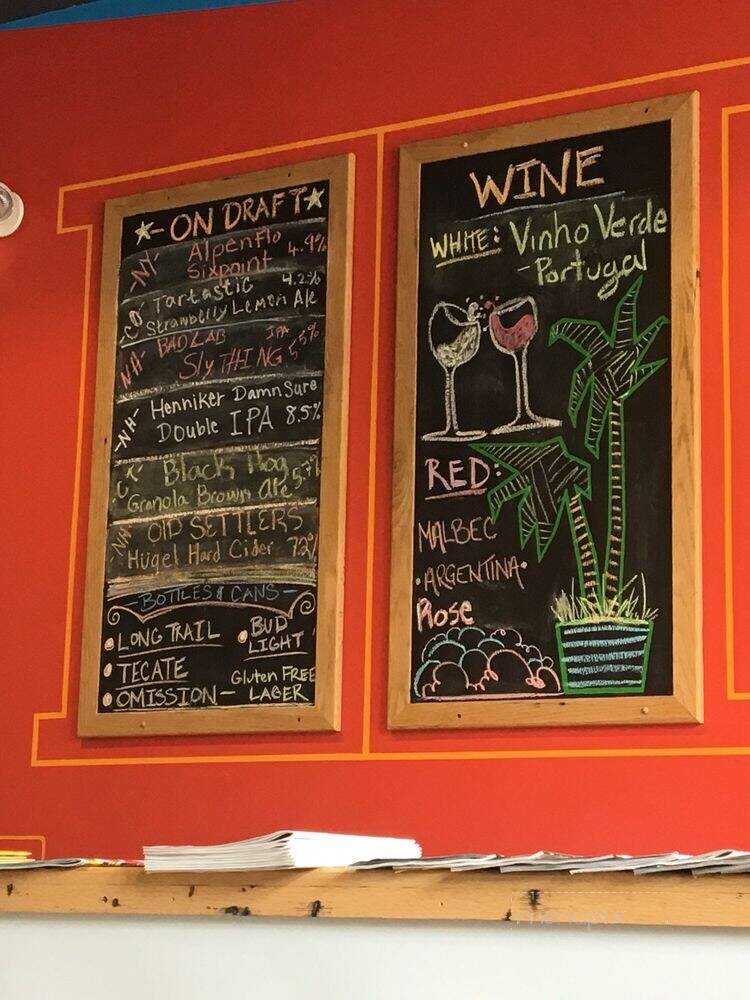 ON DRAFT
NY Alpenflo 4.9%
Sixpoint
CO Tartastic 4.2%
Strawberry Lemon Ale
NH BAD LAB IPA
Sly THING 5.5%
NH- Henniker Damn Sure
Double IPA 8.5%
CT Black Hog
Granola Brown Ale
NH OlD SETTLERS
Hügel Hard Cider
-BOTTLES & CANS-
LONG TRAIL
BUD
LIGHT
TECATE
OMISSION - Gluten FREE
LAGER
WINE
WHITE: Vinho Verde
-Portugal
RED:
MALBEC
·ARGENTINA·
Rose